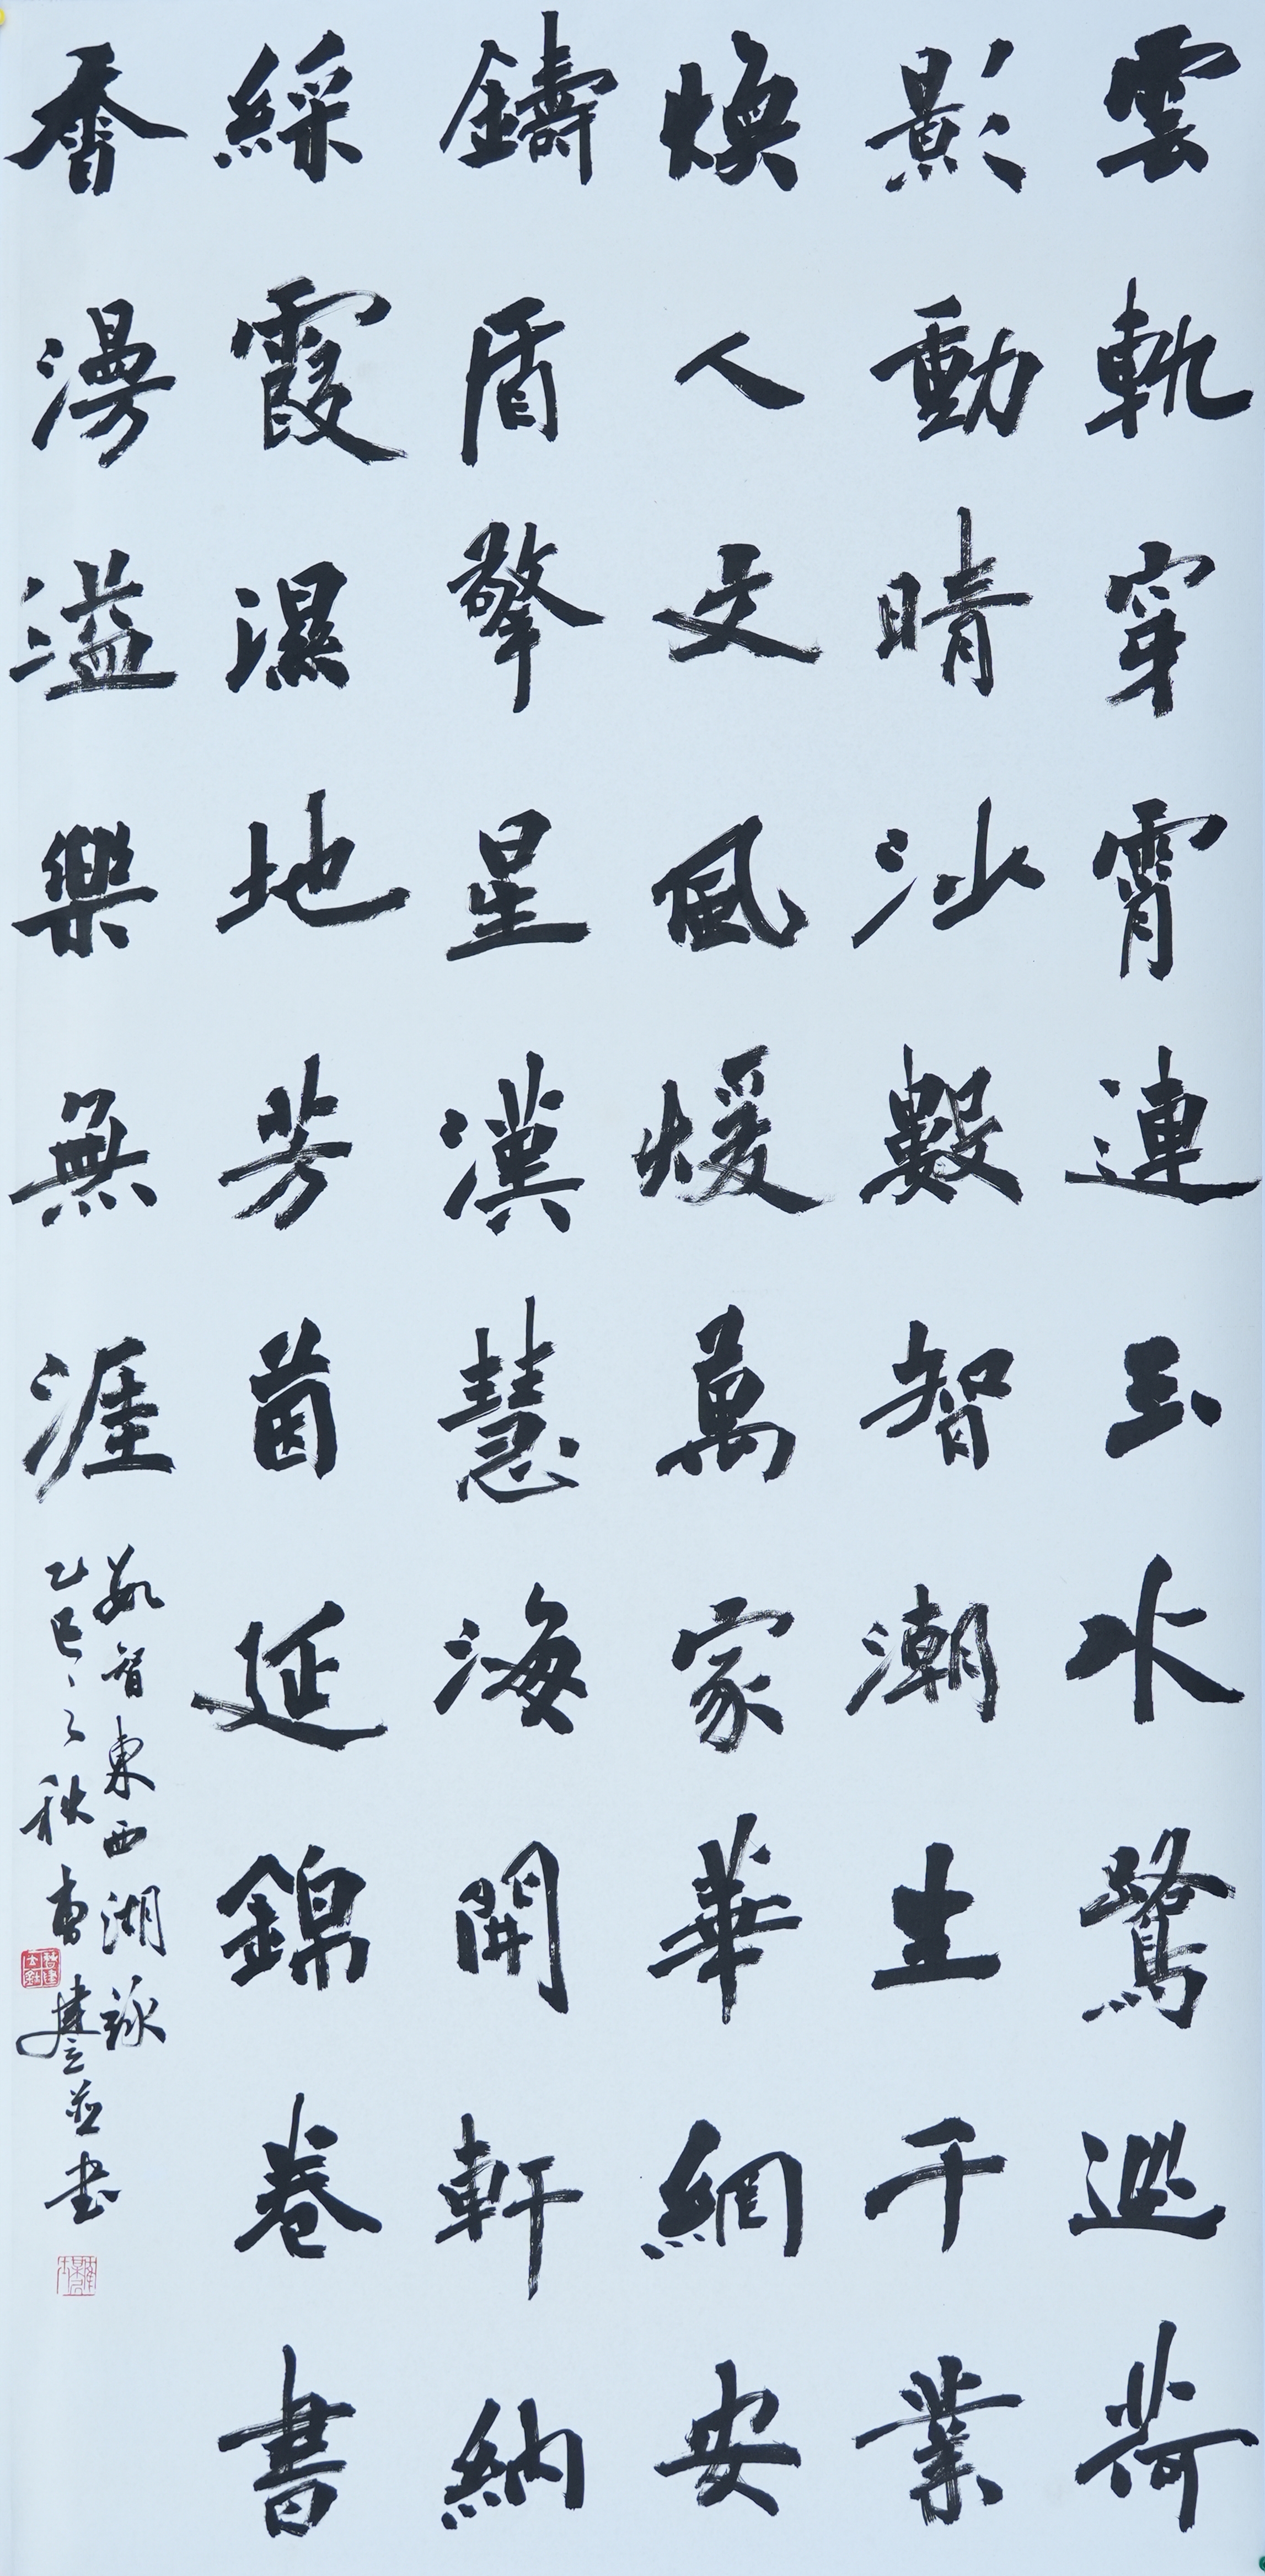 雲軌穿霄連玉水鷺巡荷
影動晴沙數智潮生千業
煥人文風煖萬家華網安
鑄盾擎星漢慧海開軒納
綵霞濕地芳茵延錦卷書
香漫溢樂無涯
數智東西湖詠
乙巳之秋曹並书